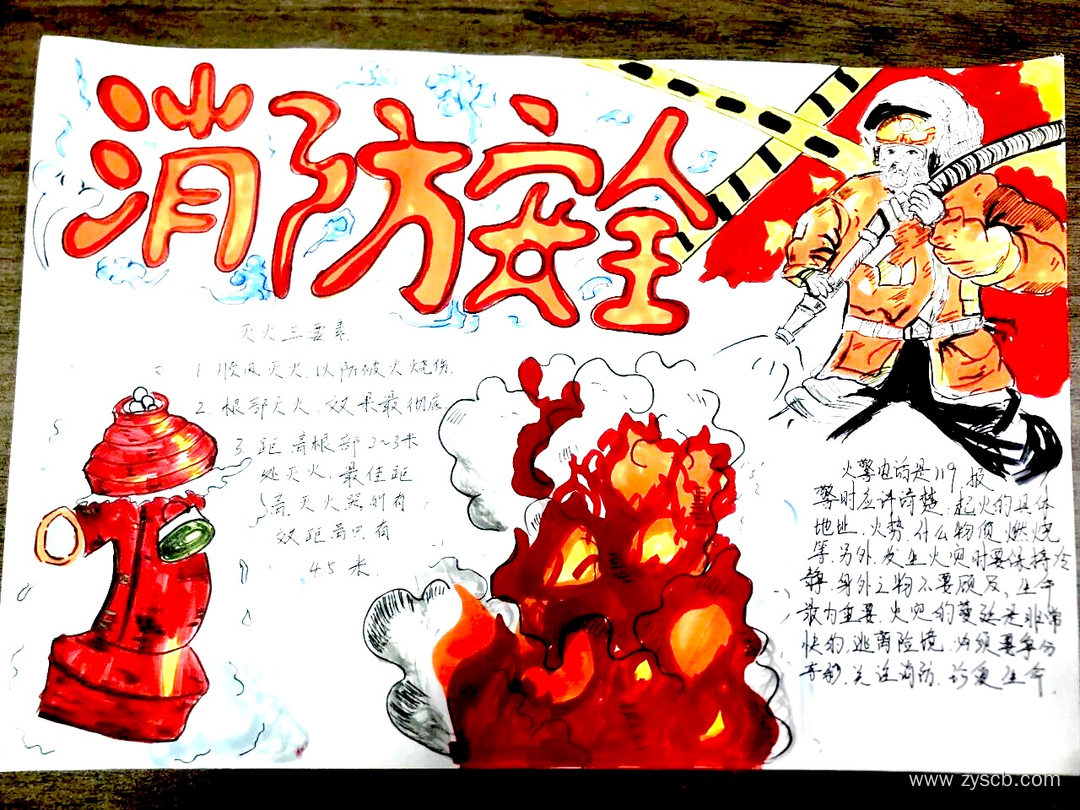 消防安全
灭火三要素
1.顺风灭火,以防被火烧伤.
2.根部灭火,效果最彻底
3.距离根部2~3米
处灭火,最佳距
离,灭火器的有
效距离只有
45米.
火警电话是119,报
警时应讲清楚,起火的具体
地址,火势,什么物质燃烧
等.另外,发生火灾时要保持冷
静,身外之物不要顾及,生命
最为重要.火灾的蔓延是非常
快的,逃离险境,必须要争分
夺秒,关注消防,珍爱生命.
www.zyscb.com